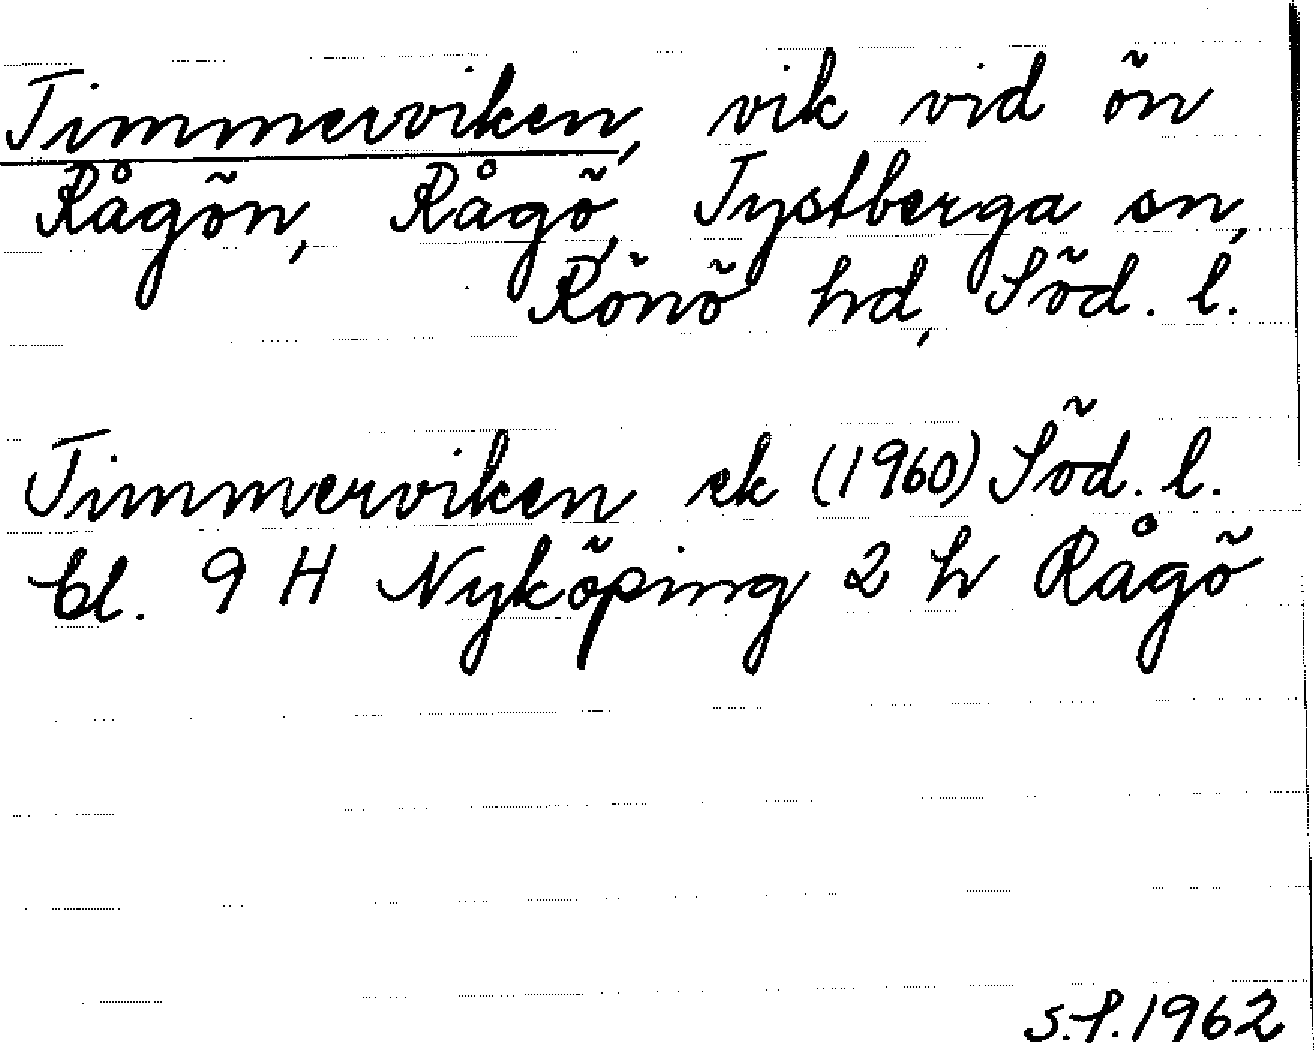 Timmerviken, vik vid ön
Rågön, Rågö, Tystberga sn,
Rönö hd, Söd. l.
Timmerviken ek (1960) Söd. l.
bl. 9 H Nyköping 2 h Rågö
S.P. 1962